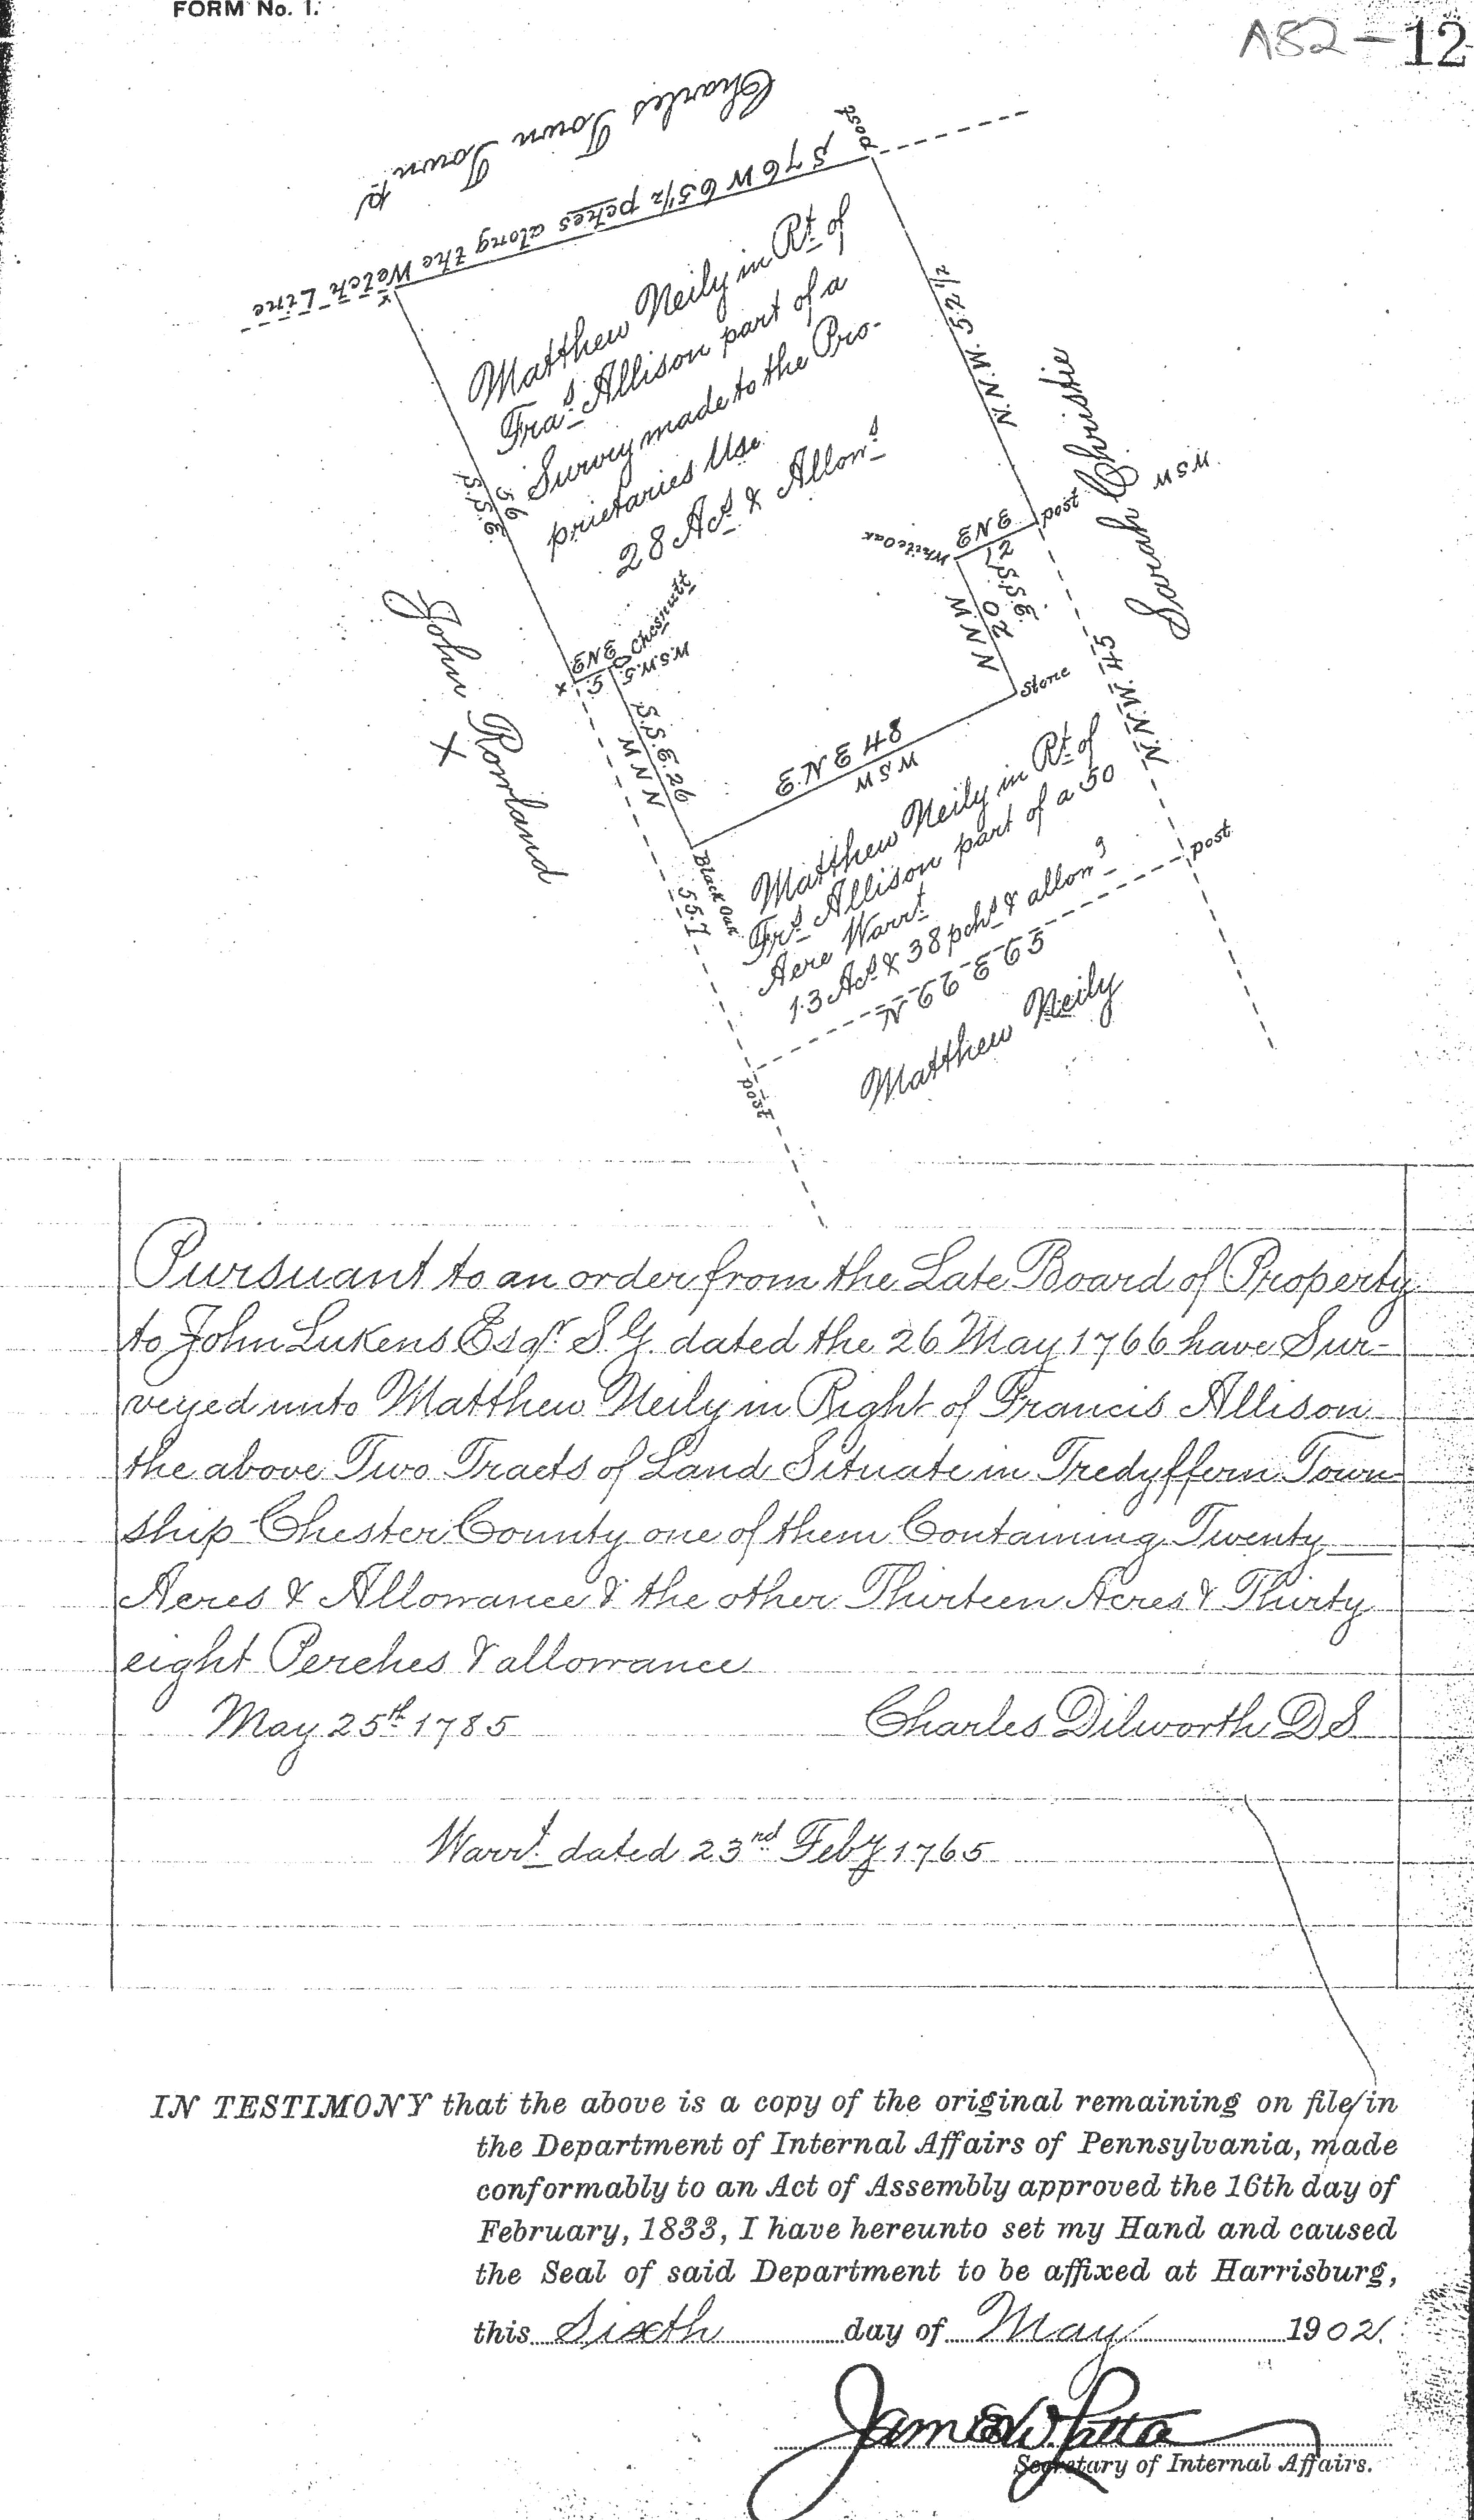 FORM No. 1.
A82-12
Charles Town Townp
S 76 W 65½ pches along the Welch Line
post
x
Matthew Neily in Rt of
Fras Allison part of a
Survey made to the Pro-
prietaries Use
28 Acs & Allows
N.N.W. 52½
S.S.E.
56
Sarah Christie
WSW
ENE
post
12
White Oak
S.S.E.
20
NNW
Stone
John Rowland
X
x
ENE
5
Chesnutt
W.S.W. 5
S.S.E. 26
NNW
E.N.E 48
WSW
N.N.W. 45
Black Oak
55.7
Matthew Neily in Rt of
Frs Allison part of a 50
Acre Warrt
13 Acs & 38 pchs & allow
post
N 66 E 65
Matthew Neily
post
Pursuant to an order from the Late Board of Property
to John Lukens Esqr S.G. dated the 26 May 1766 have Sur-
veyed unto Matthew Neily in Right of Francis Allison
the above Two Tracts of Land Situate in Tredyffern Town
ship Chester County one of them Containing Twenty
Acres & Allowance & the other Thirteen Acres & Thirty
eight Perches & allowance
May 25th 1785 Charles Dilworth D S
Warrt dated 23nd Feby 1765
IN TESTIMONY that the above is a copy of the original remaining on file in
the Department of Internal Affairs of Pennsylvania, made
conformably to an Act of Assembly approved the 16th day of
February, 1833, I have hereunto set my Hand and caused
the Seal of said Department to be affixed at Harrisburg,
this Sixth day of May 1902.
James W Latta
Secretary of Internal Affairs.